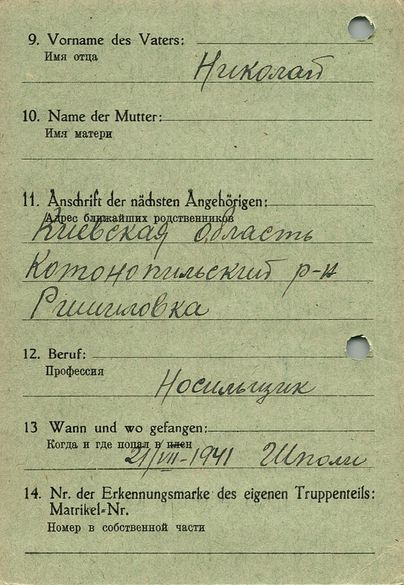 9. Vorname des Vaters:
Имя отца
Николай
10. Name der Mutter:
Имя матери
11. Anschrift der nächsten Angehörigen:
Адрес ближайших родственников
Киевская область
Котонопильский р-н
Ришиловка
12. Beruf:
Профессия
Носильщик
13 Wann und wo gefangen:
Когда и где попал в плен
21/VII-1941 Шполи
14. Nr. der Erkennungsmarke des eigenen Truppenteils:
Matrikel-Nr.
Номер в собственной части